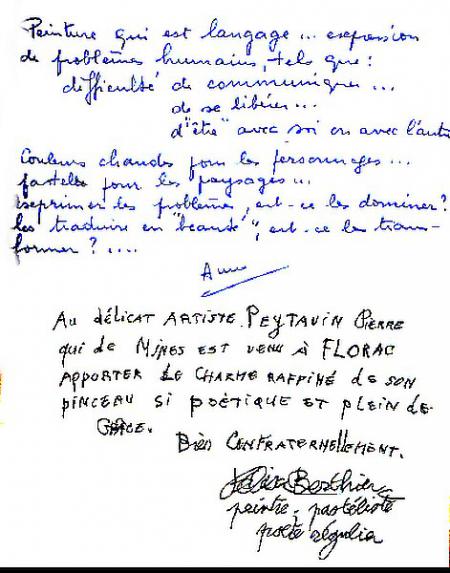 Peinture qui est langage... expression
de problèmes humains, tels que :
difficulté de communiquer...
de se libérer...
d'"être" avec soi ou avec l'autre
Couleurs chaudes pour les personnages...
pastelles pour les paysages...
exprimer les problèmes, est-ce les dominer?
les traduire en "beauté", est-ce les trans-
former?....
Anne
Au délicat ARTISTE PEYTAVIN PIERRE
qui de Nîmes EST VENU À FLORAC
APPORTER LE CHARME RAFFINÉ de SON
PINCEAU SI POÉTIQUE ET PLEIN de
GRÂCE.
BIEN CONFRATERNELLEMENT.
Berthier
peintre, pastéliste